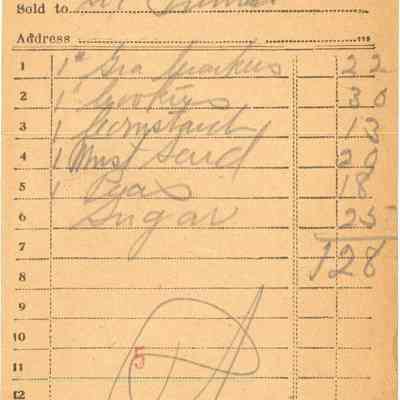 Sold to
Address
1 1 Gra Crackers 22
2 1 Cookies 30
3 1 Cornstarch 13
4 1 Must Seed 20
5 1 Peas 18
6 Sugar 25
7 128
8
9
10
5
11
12